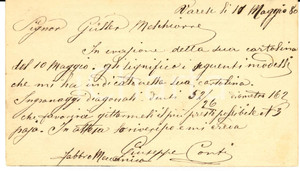 Varese li 11 Maggio 80
Signor Giulio Melchiorre
In evasione della sua cartolina
del 10 Maggio. gli significo i seguenti modelli
che mi ha indicato nella sua cartolina.
Ingranaggi diagonali denti 52/26 162
che favorirà gittameli il più presti possibile N 3
paja. In attesa
Giuseppe Conti
fabbro Meccanico